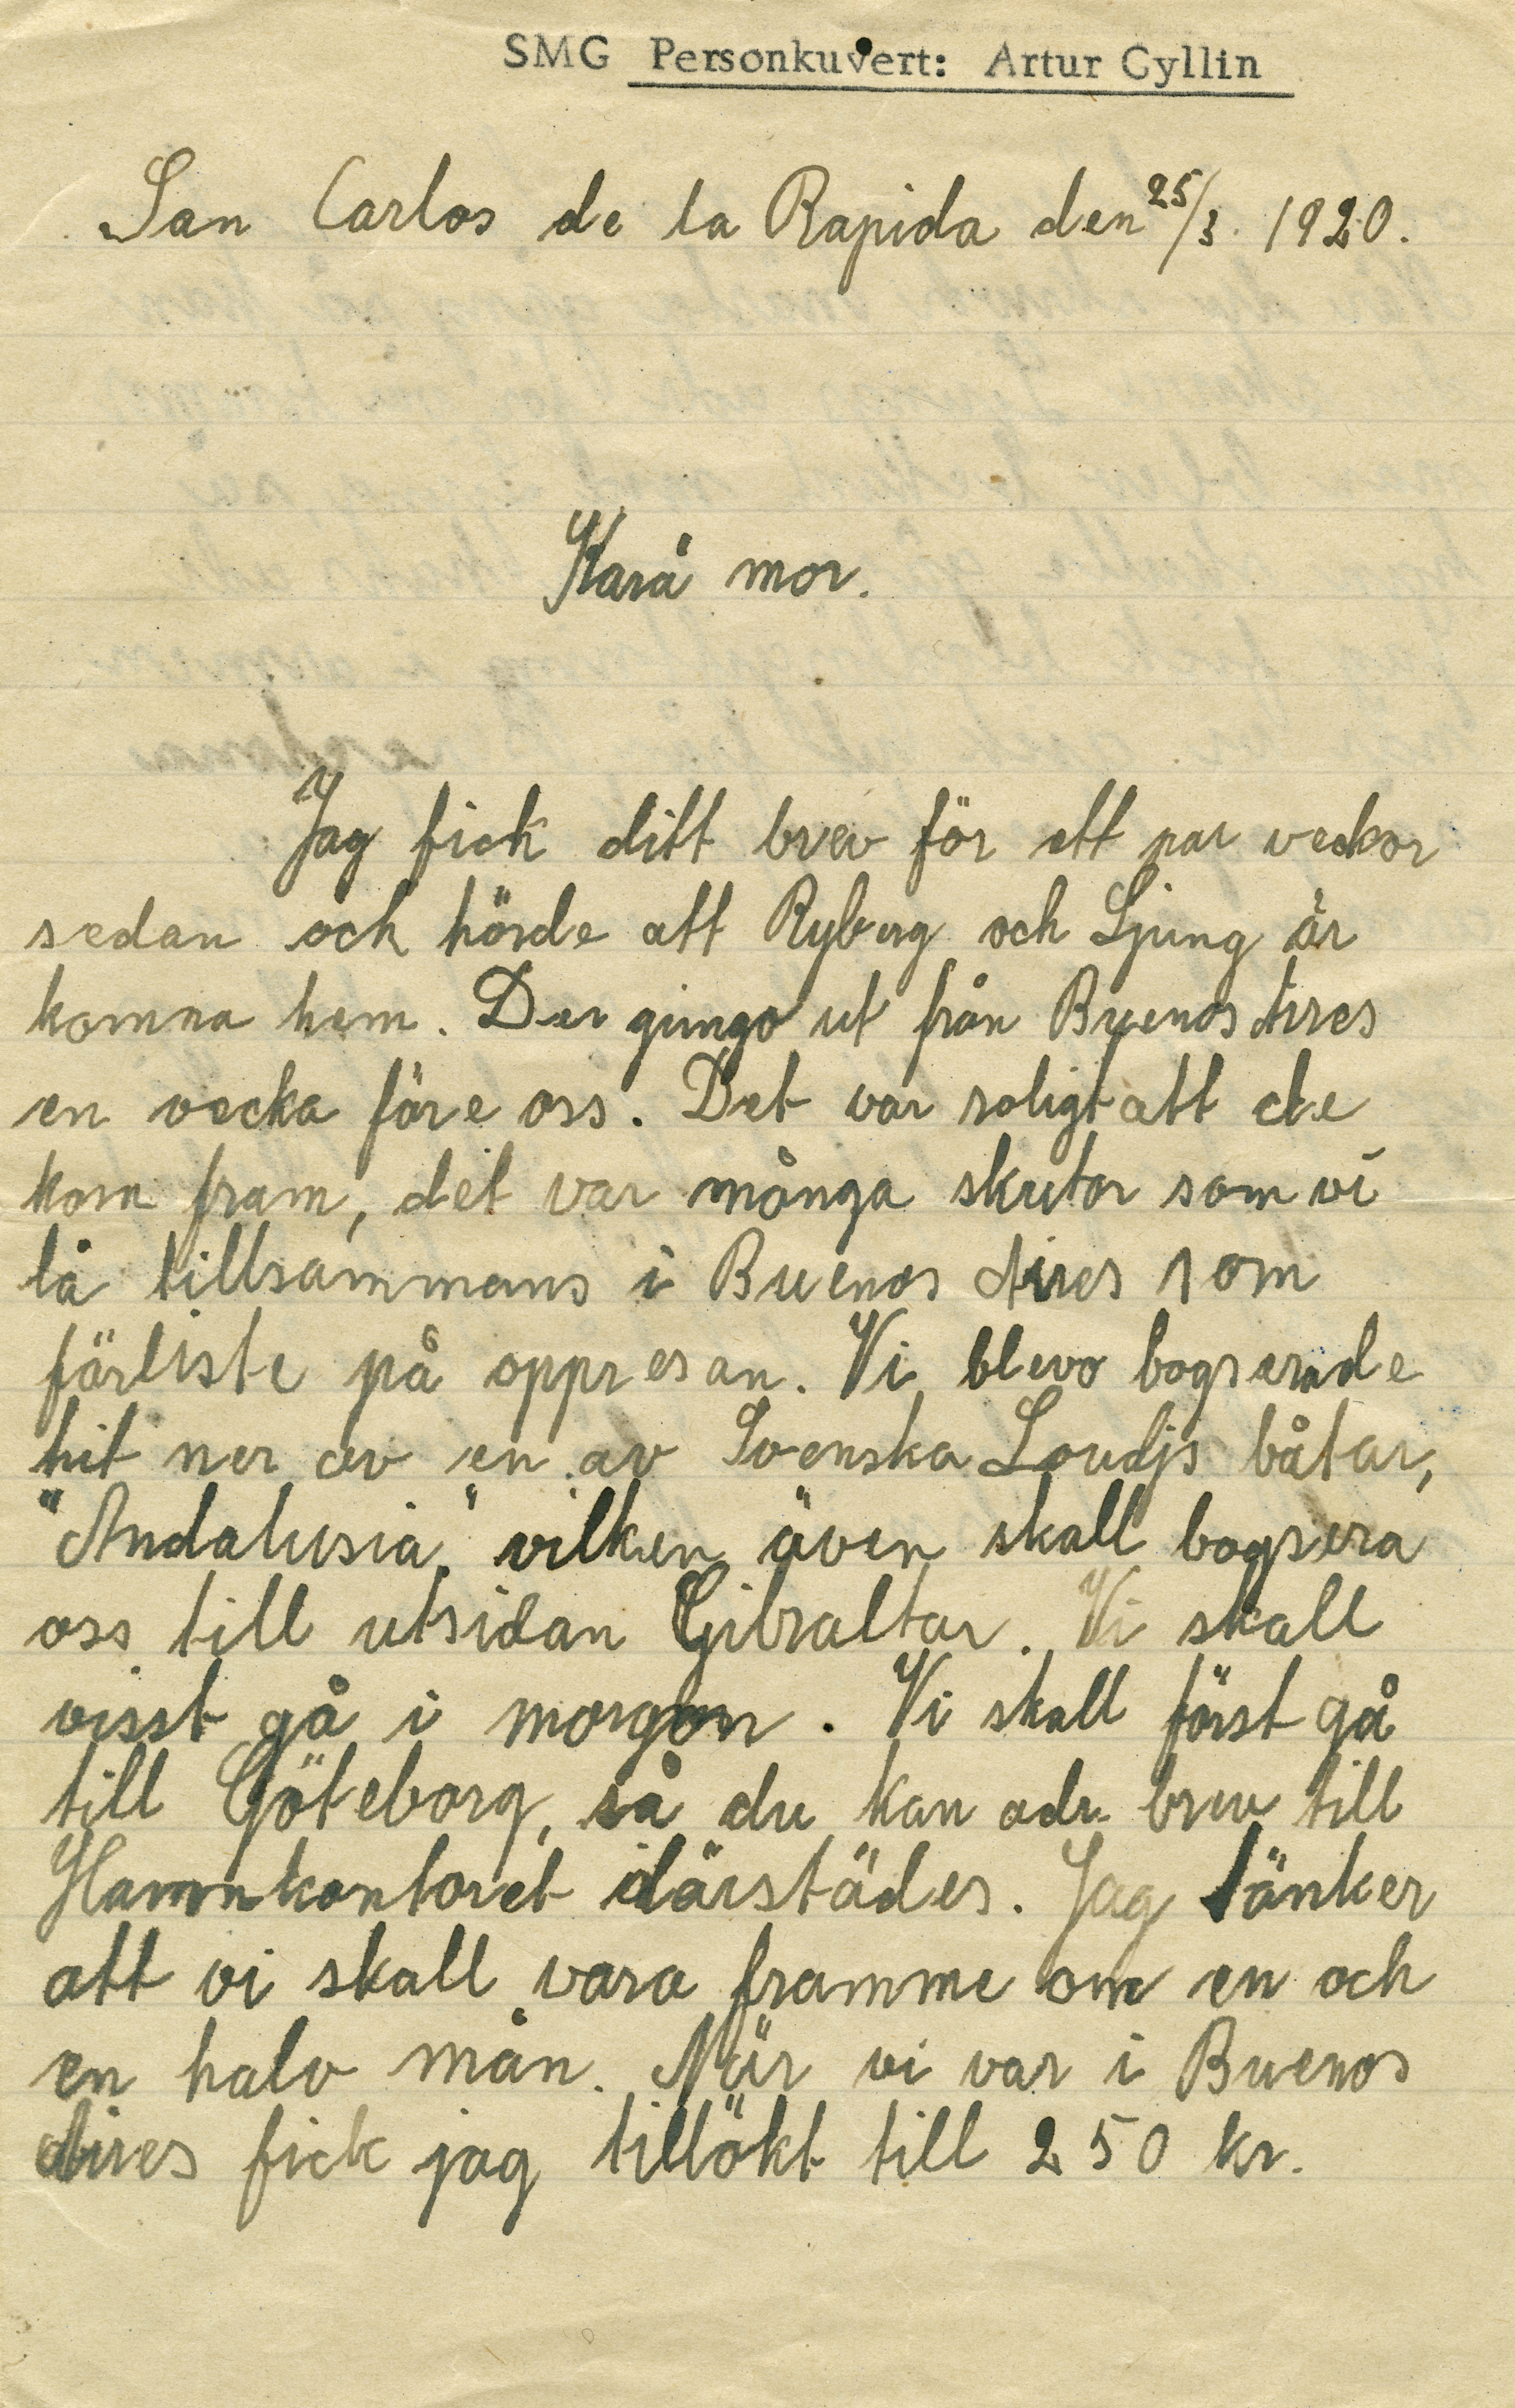 SMG Personkuvert: Artur Gyllin
San Carlos de la Rapida den 25/3. 1920.
Kära mor.
Jag fick ditt brev för ett par veckor
sedan och hörde att Ryberg och Ljung är
komna hem. Der gingo ut från Buenos Aires
en vecka före oss. Det var roligt att de
kom fram, det var många skutor som vi
lå tillsammans i Buenos Aires som
förliste på oppresan. Vi blevo bogserade
hit ner av en av Svenska Loudjs båtar,
"Andalusia," vilken även skall bogsera
oss till utsidan Gibraltar. Vi skall
visst gå i morgon. Vi skall först gå
till Göteborg, så du kan adr. brev till
Hamnkontoret därstädes. Jag tänker
att vi skall vara framme om en och
en halv mån. När vi var i Buenos
Aires fick jag tillökt till 250 kr.